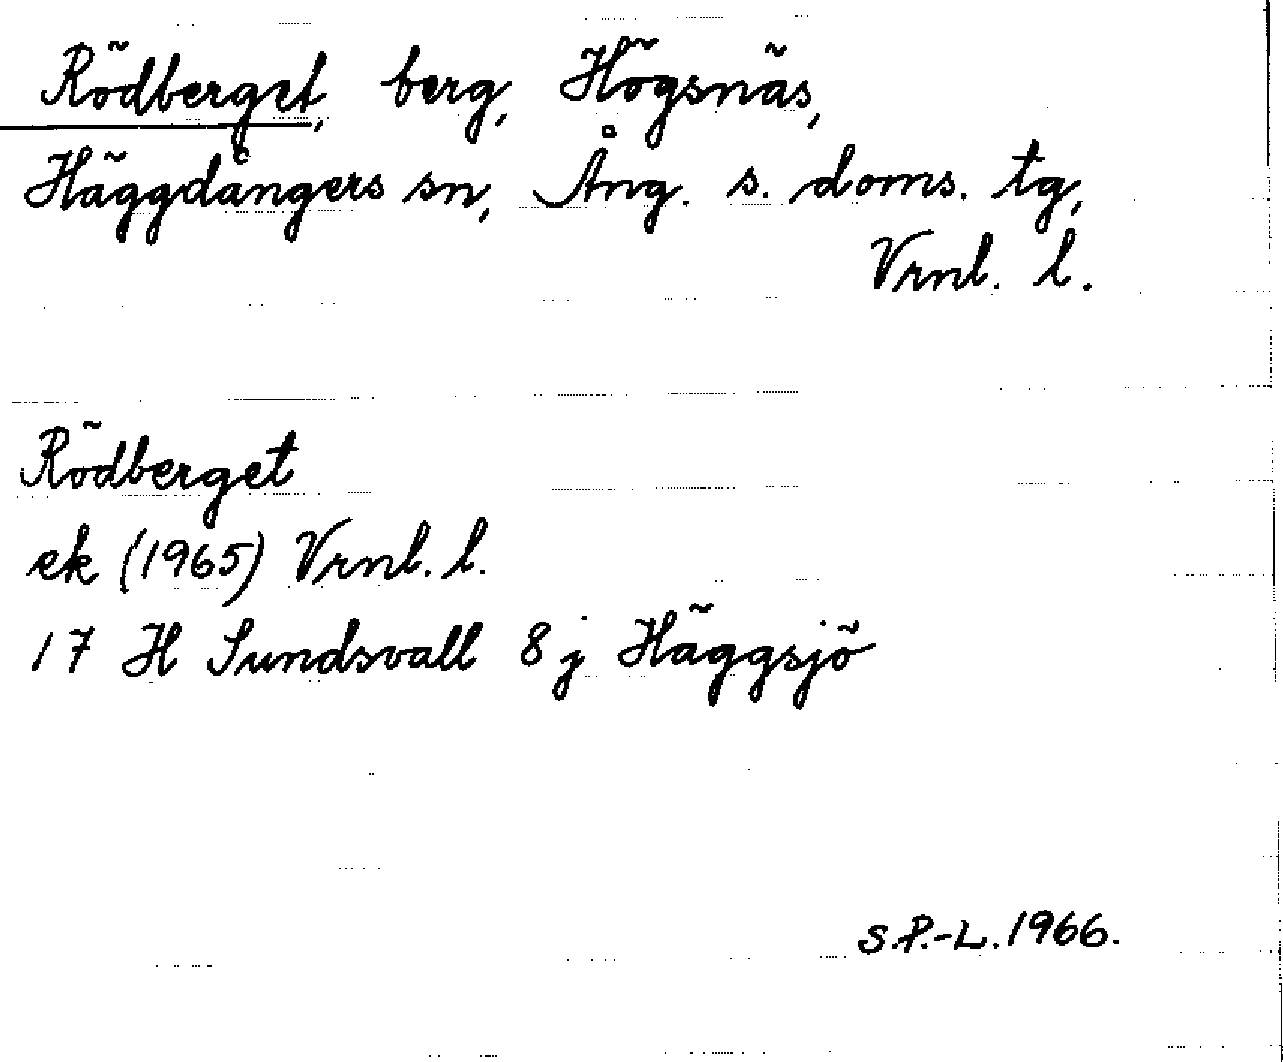 Rödberget, berg, Högsnäs,
Häggdångers sn, Ång. s. doms. tg,
Vrnl. l.
Rödberget
ek (1965) Vrnl. l.
17 H Sundsvall 8 j Häggsjö
S.P.-L. 1966.